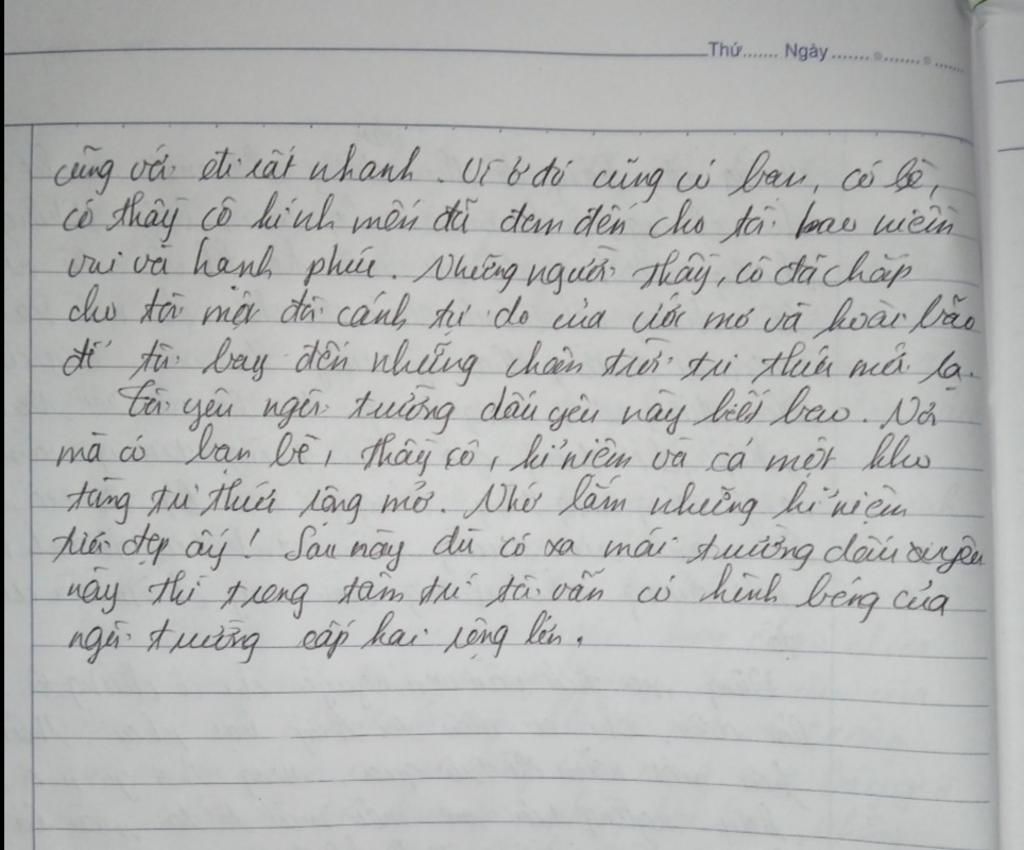 Thứ....... Ngày....... ....... .......
cũng vơi đi rất nhanh. Vì ở đó cũng có bạn, có bè,
có thầy cô kính mến đã đem đến cho tôi bao niềm
vui và hạnh phúc. Những người thầy, cô đã chắp
cho tôi một đôi cánh tự do của ước mơ và hoài bão
để tôi bay đến những chân trời tri thức mới lạ.
Tôi yêu ngôi trường dấu yêu này biết bao. Nơi
mà có bạn bè, thầy cô, kỉ niệm và cả một kho
tàng tri thức rộng mở. Nhớ lắm những kỉ niệm
tươi đẹp ấy! Sau này dù có xa mái trường dấu yêu
này thì trong tâm trí tôi vẫn có hình bóng của
ngôi trường cấp hai rộng lớn.